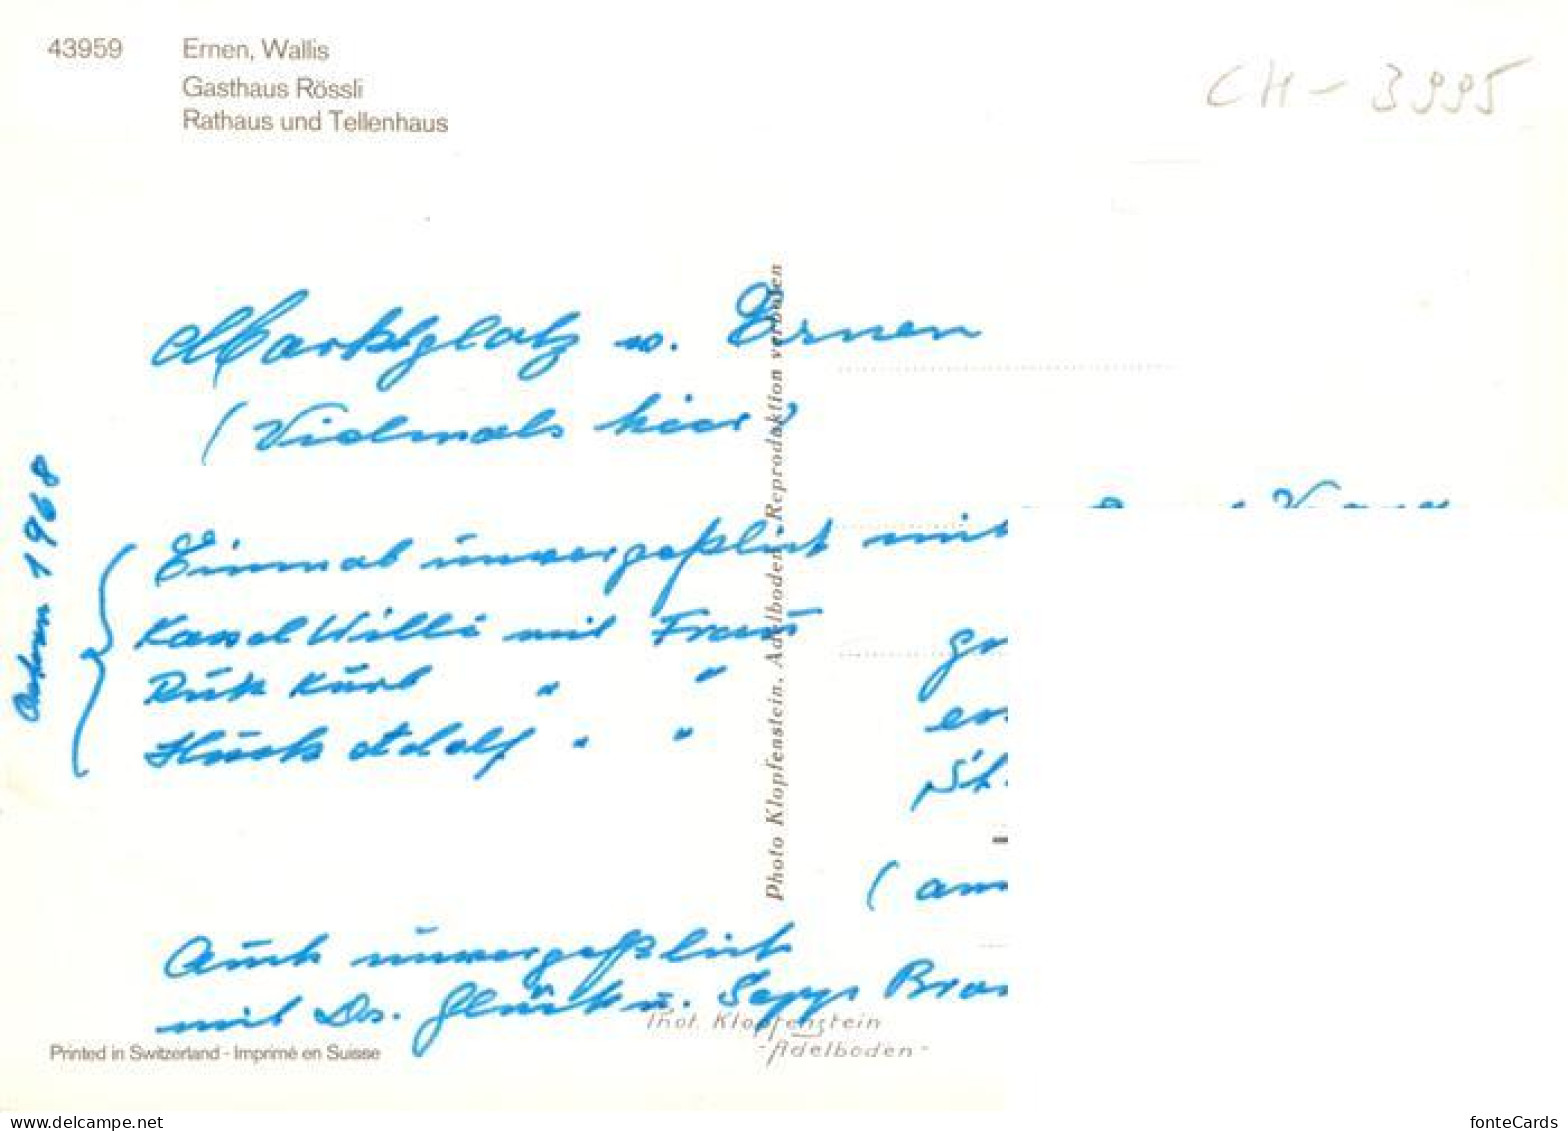 43959 Ernen, Wallis
Gasthaus Rössli
Rathaus und Tellenhaus
CH - 3995
Marktplatz v. Ernen
(Vielmals hier)
Ostern 1968
Einmal unvergeßlich mit
Kassel Willi mit Frau
Kurt " "
Huck Adolf " "
(am
Auch unvergeßlich
mit Dr. Glück u. Sepp
Photo Klopfenstein, Adelboden - Reproduktion verboten
Phot. Klopfenstein
-Adelboden-
Printed in Switzerland - Imprimé en Suisse
www.delcampe.net
fonteCards